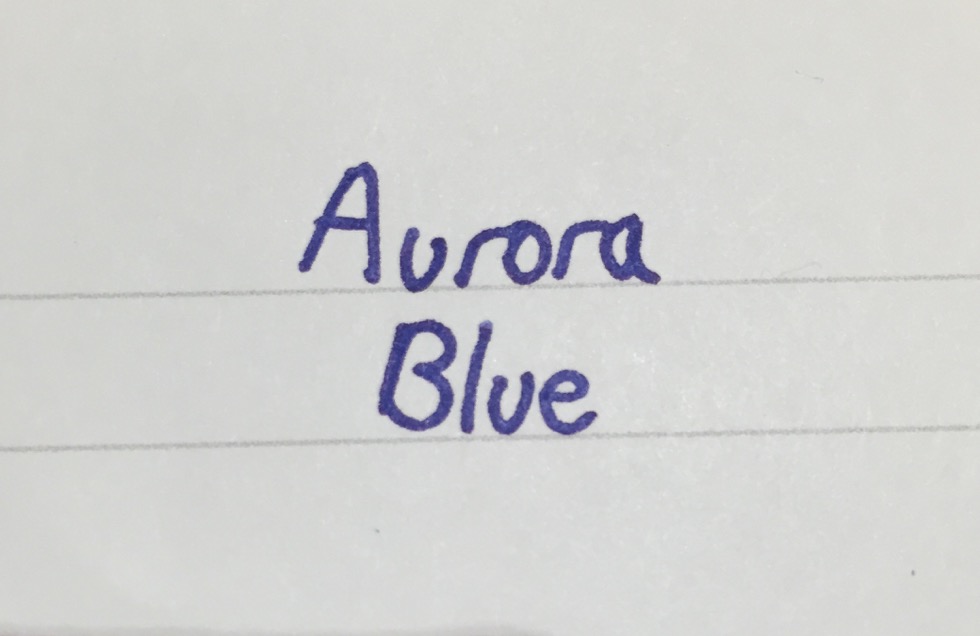 Aurora
Blue